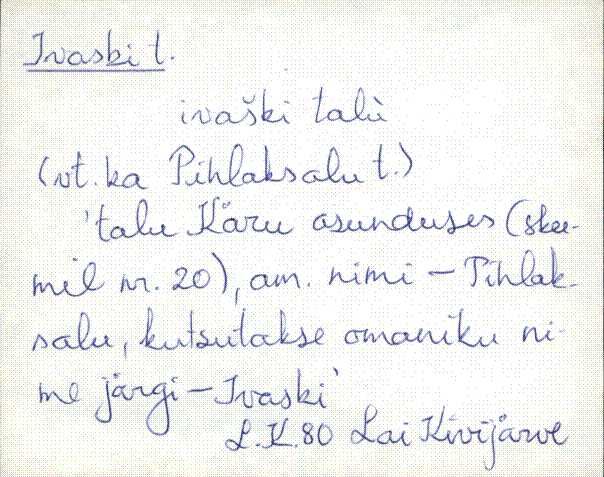 Ivaski t.
ivaški talù
(vt. ka Pihlaksalu t.)
'talu Käru asunduses (skee-
mil nr. 20), am. nimi – Pihlak-
salu, kutsutakse omaniku ni-
me järgi – Ivaski'
L.K. 80 Lai Kivijärve